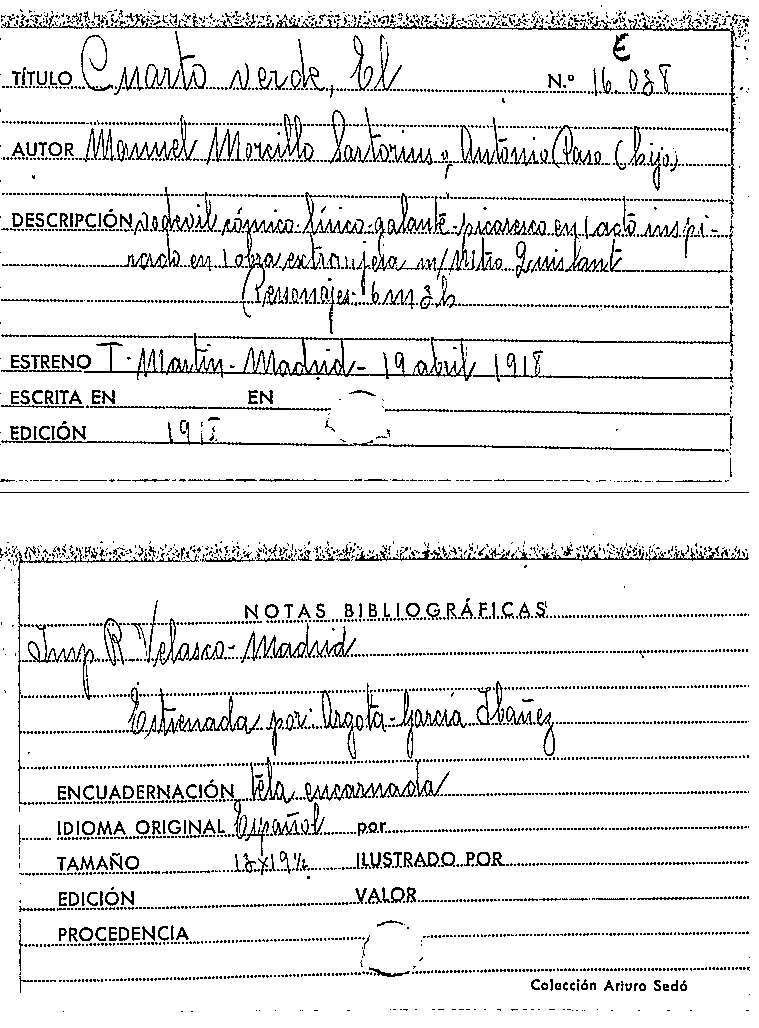 E
TÍTULO Cuarto verde, El N.º 16.038
AUTOR Manuel Morcillo Sartorius y Antonio Paso (hijo)
DESCRIPCIÓN vodevil cómico-lírico-galante-picaresco en 1 acto inspi-
rado en 1 obra extranjera m/ Mtro Quislant
(Personajes- 6m 3h
ESTRENO T. Martín- Madrid- 19 abril 1918
ESCRITA EN EN
EDICIÓN 1918
NOTAS BIBLIOGRÁFICAS
Imp R Velasco- Madrid
Estrenada por: Argota-García Ibañez
ENCUADERNACIÓN tela encarnada
IDIOMA ORIGINAL Español por
TAMAÑO 13x19½ ILUSTRADO POR
EDICIÓN VALOR
PROCEDENCIA
Colección Arturo Sedó